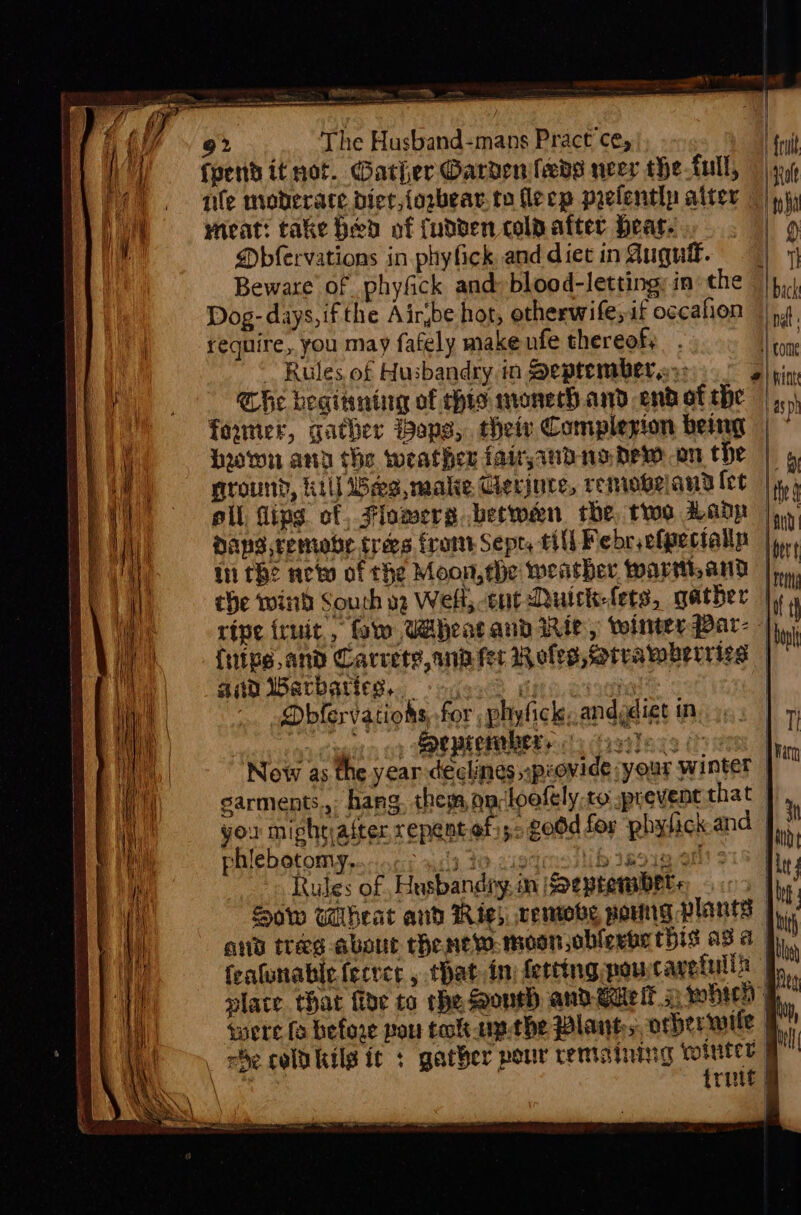 92 The Husband-mans Practice,
ſpend it not. Gather Garden ſeeds neer the full,
uſe moderate diet, forbear to ſleep preſently after
meat: take heed of ſudden cold after heat.
Obſervations in phyſick and diet in Auguſt.
Beware of phyſick and blood-letting in the
Dog-days, if the Air be hot, otherwiſe, if occaſion
require, you may ſafely make uſe thereof.
Rules of Husbandry in September.
The beginning of this moneth and end of the
former, gather Hops, their Complexion being
brown and the weather fair, and no dew on the
ground, kill Bees, make Verjuce, remove and ſet
all ſlips of Flowers between the two Lady
days, remove trees from Sept. till Febr. eſpecially
in the new of the Moon, the weather warm, and
the wind South or Weſt, cut Quick-ſets, gather
ripe fruit, ſow Wheat and Rie, winter Par-
ſnips, and Carrets, and ſet Roſes, Strawberries
and Barbaries.
Obſervations, for phyſick, and diet in
September.
Now as the year declines, provide your winter
garments, hang them on looſely to prevent that
you might after repent of; good for phyſick and
phlebotomy.
Rules of Husbandry in September.
Sow Wheat and Rie, remove young plants
and trees about the new moon, obſerve this as a
ſeaſonable ſecret, that in ſetting you carefully
place that ſide to the South and Weſt, which
were ſo before you took up the Plant, otherwiſe
the cold kils it: gather your remaining winter
fruit